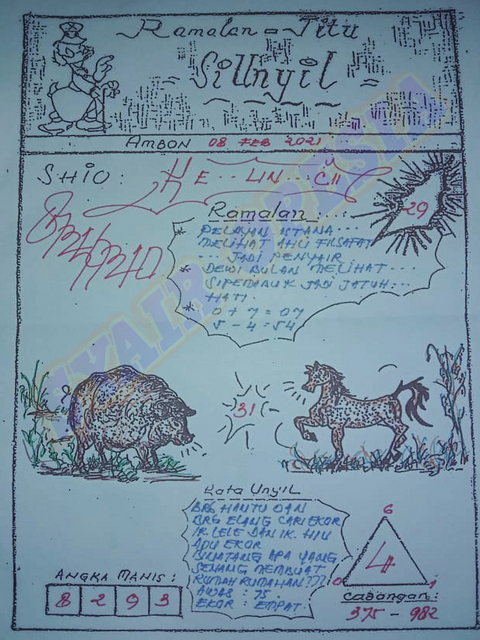 Ramalan = Jitu
Si Unyil
AMBON 08 FEB 2021
SHIO :
KE .. LIN .. CI
29
Ramalan
* PELAYAN ISTANA...
MELIHAT AHLI FILSAFAT
... JADI PENYAIR
* DEWI BULAN MELIHAT...
SIPEMABUK JADI JATUH...
HATI.
* 0 + 7 = 07
5 - 4 = 54
SYAIR PASIA
31
Kata Unyil
BRG HANTU DAN
BRG ELANG CARI EKOR
IK. LELE DAN IK. HIU
ADU EKOR
BINATANG APA YANG
SENANG MEMBUAT
RUMAH RUMAHAN ???
AWAS : 75.
EKOR : EMPAT.
6
4
0 1
ANGKA MANIS :
8 2 9 3
Cabangan :
375 - 982